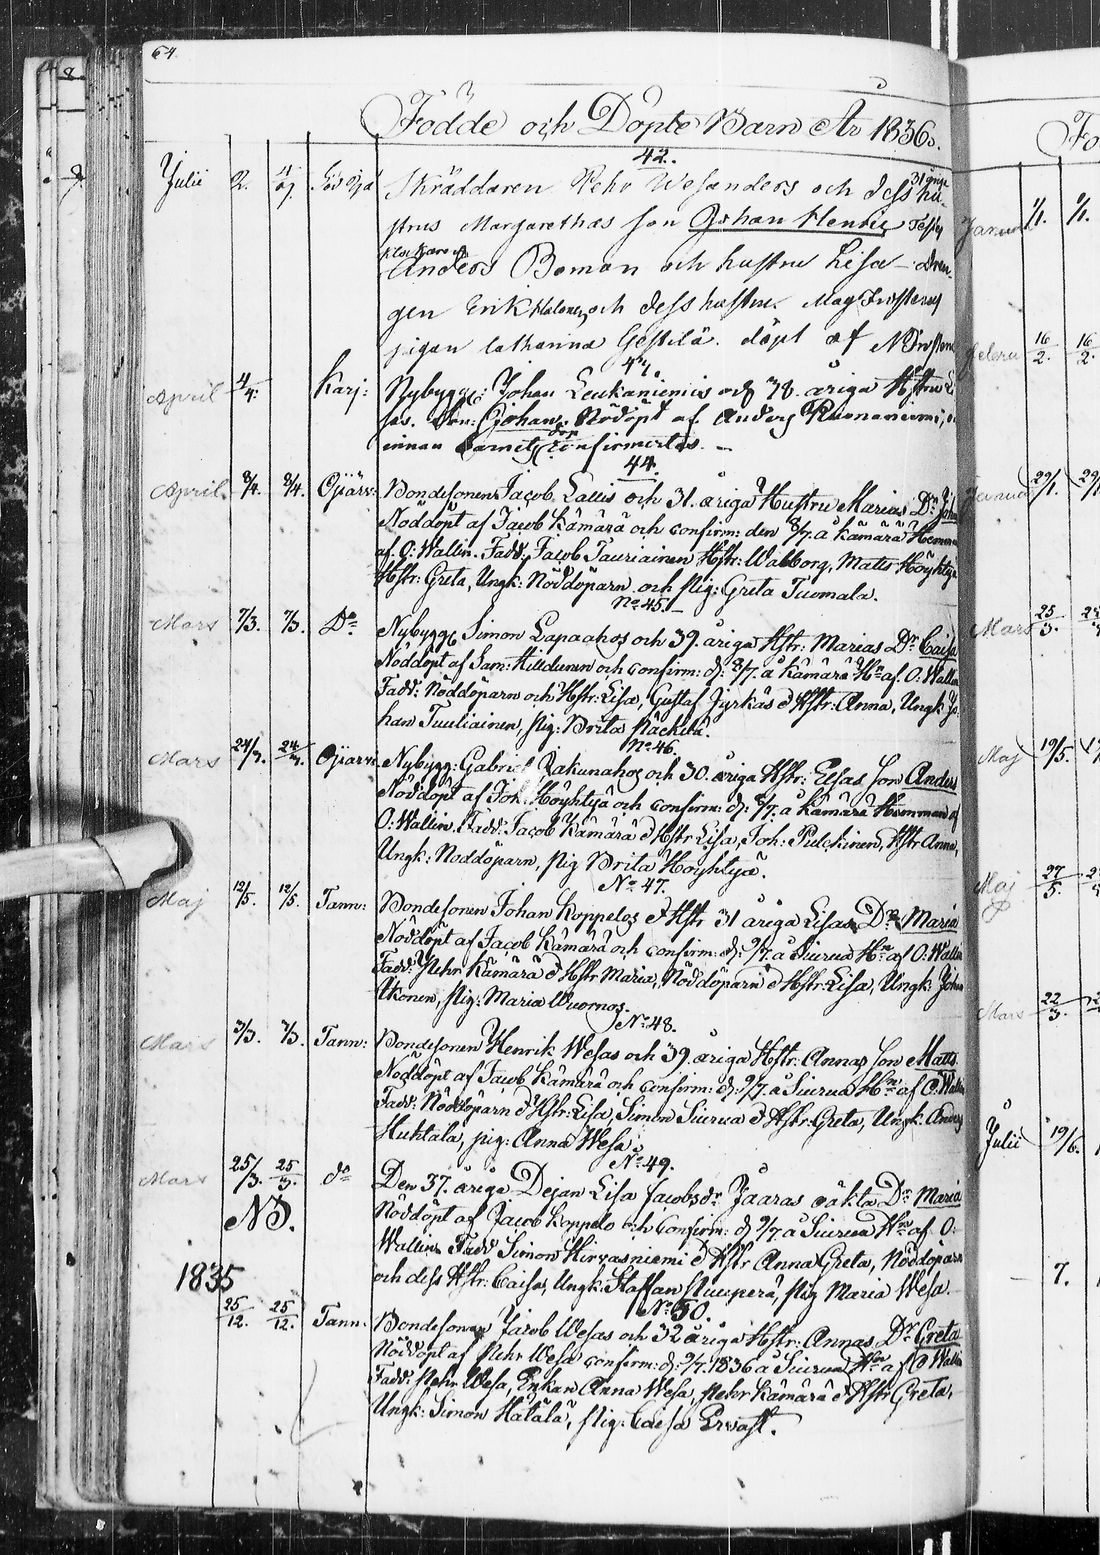 64.
Födde och Döpte Barn År 1836.
42.
Julii 2. Skräddaren Pehr Wesanders och dess 31 åriga hu-
strus Margarethas son Johan Henric Test:
Anders Boman och hustru Lisa - Dren-
gen Erik Halonen och dess hustru. Mag
pigan Catharina döpt af
43.
April 4/4. Karj: Nybygg: Johan Leukaniemis och 38. åriga Hstru Li-
sas. Son: Johan. Nöddöpt af Anders
innan barnets confirmerades. -
44.
April. 8/4. 8/4. Ojärv: Bondesonen Jacob Lallis och 31. åriga Hustru Marias Dr Joha
Nöddöpt af Jacob Kämärä och confirm: den 8/7. å Kämärä Hemma
af O: Wallin. Fadd: Jacob Tauriainen Hstr: Walborg, Matts Höyhtyä
Hstr: Greta, Ungk: Nöddöparn och Pig: Greta Tuomala.
No 45.
Mars 7/3. 7/3. Do Nybygg: Simon Lapaahos och 39. åriga Hstr: Marias Dr Caisa
Nöddöpt af Sam: och confirm: d: 8/7. å Kämärä Hn af O: Wallin
Fadd: Nöddöparn och Hstr: Lisa, Gustaf Jyrkäs o Hstr: Anna, Ungk: Jo-
han Tuuliainen, Pig: Brita
No 46.
Mars 24/3. 24/3. Ojärv: Nybygg: Gabriel Rakunahos och 30. åriga Hstr: Elsas Son Anders
Nöddöpt af Joh: Höyhtyä och confirm: d: 8/7. å Kämärä Hemman af
O: Wallin. Fadd: Jacob Kämärä o Hstr Lisa, Joh: Pulkinen, Hstr Anna,
Ungk: Nöddöparn, Pig Brita Höyhtyä.
No 47.
Maj 12/5. 12/5. Tann: Bondesonen Johan Koppelos o Hstr 31 åriga Lisas Dr Maria
Nöddöpt af Jacob Kämärä och confirm: d: 9/7. å Siurua Hn af O: Wallin
Fadd: Pehr Kämärä o Hstr Maria, Nöddöparn o Hstr: Lisa, Ungk: Johan
Ikonen, Pig: Maria Wuornos.
No 48.
Mars 3/3. 3/3. Tann: Bondesonen Henrik Wesas och 39. åriga Hstr: Annas Son Matts.
Nöddöpt af Jacob Kämärä och confirm: d: 9/7. å Siurua Hn af O: Wallin
Fadd: Nöddöparn o Hstr: Lisa, Simon Siurua o Hstr: Greta, Ungk: Anders
Huhtala, pig: Anna Wesa.
No 49.
Mars 25/3. 25/3. do Den 37. åriga Dejan Lisa Jacobsdr Jaaras oäkta Dr Maria
NB. Nöddöpt af Jacob Koppelo och confirm: d 9/7 å Siurua Hn af O:
Wallin. Fadd Simon Hirvasniemi o Hstr Anna Greta, Nöddöparn
1835 och dess Hstr: Caisa, Ungk: Staffan Stuuperä, Pig Maria Wesa.
No 50.
25/12. 25/12. Tann: Bondesonen Jacob Wesas och 32 åriga Hstr: Annas Dr Greta
Nöddöpt af Pehr Wesa confirm: d: 9/7. 1836 å Siurua Hn af O Wallin
Fadd: Pehr Wesa, Enkan Anna Wesa, Pehr Kämärä o Hstr Greta,
Ungk: Simon Hätälä, Pig: Caisa Ervast.
1/1. 1/1.
16/2. 16/2.
29/1.
Mars 25/3.
Maj 19/5.
Maj 27/5.
Mars 22/3.
Julii 19/6.
7.